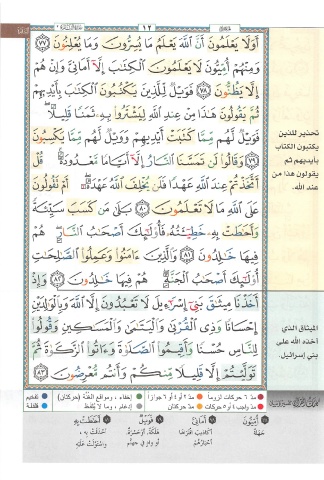 ١٢
أَوَلَا يَعْلَمُونَ أَنَّ اللَّهَ يَعْلَمُ مَا يُسِرُّونَ وَمَا يُعْلِنُونَ ٧٧
وَمِنْهُمْ أُمِّيُّونَ لَا يَعْلَمُونَ الْكِتَابَ إِلَّا أَمَانِيَّ وَإِنْ هُمْ
إِلَّا يَظُنُّونَ ٧٨ فَوَيْلٌ لِلَّذِينَ يَكْتُبُونَ الْكِتَابَ بِأَيْدِيهِمْ
ثُمَّ يَقُولُونَ هَذَا مِنْ عِنْدِ اللَّهِ لِيَشْتَرُوا بِهِ ثَمَنًا قَلِيلًا
فَوَيْلٌ لَهُمْ مِمَّا كَتَبَتْ أَيْدِيهِمْ وَوَيْلٌ لَهُمْ مِمَّا يَكْسِبُونَ
٧٩ وَقَالُوا لَنْ تَمَسَّنَا النَّارُ إِلَّا أَيَّامًا مَعْدُودَةً قُلْ
أَتَّخَذْتُمْ عِنْدَ اللَّهِ عَهْدًا فَلَنْ يُخْلِفَ اللَّهُ عَهْدَهُ أَمْ تَقُولُونَ
عَلَى اللَّهِ مَا لَا تَعْلَمُونَ ٨٠ بَلَى مَنْ كَسَبَ سَيِّئَةً
وَأَحَاطَتْ بِهِ خَطِيئَتُهُ فَأُولَئِكَ أَصْحَابُ النَّارِ هُمْ
فِيهَا خَالِدُونَ ٨١ وَالَّذِينَ ءَامَنُوا وَعَمِلُوا الصَّالِحَاتِ
أُولَئِكَ أَصْحَابُ الْجَنَّةِ هُمْ فِيهَا خَالِدُونَ ٨٢ وَإِذْ
أَخَذْنَا مِيثَاقَ بَنِي إِسْرَءِيلَ لَا تَعْبُدُونَ إِلَّا اللَّهَ وَبِالْوَالِدَيْنِ
إِحْسَانًا وَذِي الْقُرْبَى وَالْيَتَامَى وَالْمَسَاكِينِ وَقُولُوا
لِلنَّاسِ حُسْنًا وَأَقِيمُوا الصَّلَاةَ وَءَاتُوا الزَّكَاةَ ثُمَّ
تَوَلَّيْتُمْ إِلَّا قَلِيلًا مِنْكُمْ وَأَنْتُمْ مُعْرِضُونَ ٨٣
تحذير للذين
يكتبون الكتاب
بأيديهم ثم
يقولون هذا من
عند الله.
الميثاق الذي
أخذه الله على
بني إسرائيل.
مدّ ٦ حركات لزوماً مدّ ٢ أو ٤ أو ٦ جوازاً إخفاء، ومواقع الغنّة (حركتان) تفخيم
مدّ واجب ٤ أو ٥ حركات مدّ حركتان إدغام، وما لا يُلفظ قلقلة
أُمِّيُّونَ أَمَانِيَّ فَوَيْلٌ أَحَاطَتْ بِهِ